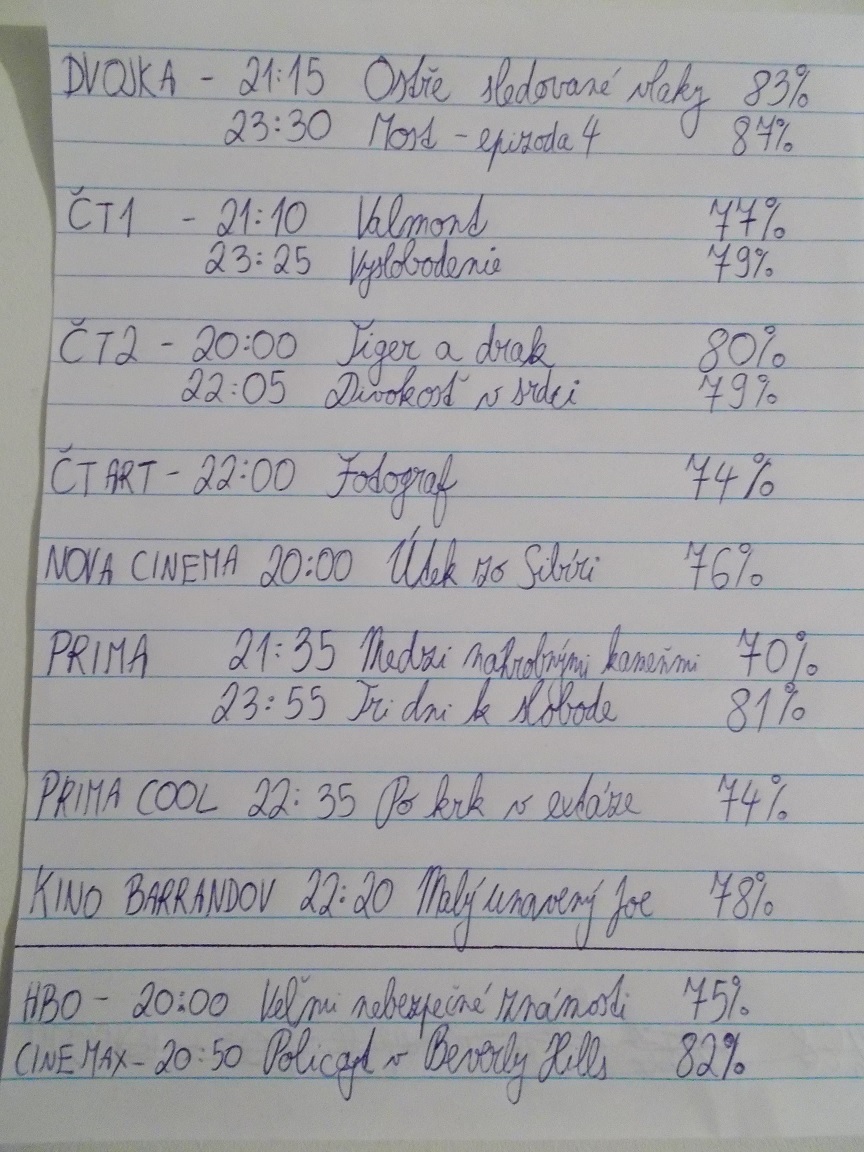 DVOJKA - 21:15 Ostře sledované vlaky 83%
23:30 Most - epizoda 4 87%
ČT1 - 21:10 Valmont 77%
23:25 Vyslobodenie 79%
ČT2 - 20:00 Tiger a drak 80%
22:05 Divokosť v srdci 79%
ČT ART - 22:00 Fotograf 74%
NOVA CINEMA 20:00 Útek zo Sibíri 76%
PRIMA 21:35 Medzi nahrobnými kameňmi 70%
23:55 Tri dni k slobode 81%
PRIMA COOL 22:35 Po krk v extáze 74%
KINO BARRANDOV 22:20 Malý unavený Joe 78%
HBO - 20:00 Veľmi nebezpečné známosti 75%
CINEMAX - 20:50 Policajt v Beverly Hills 82%